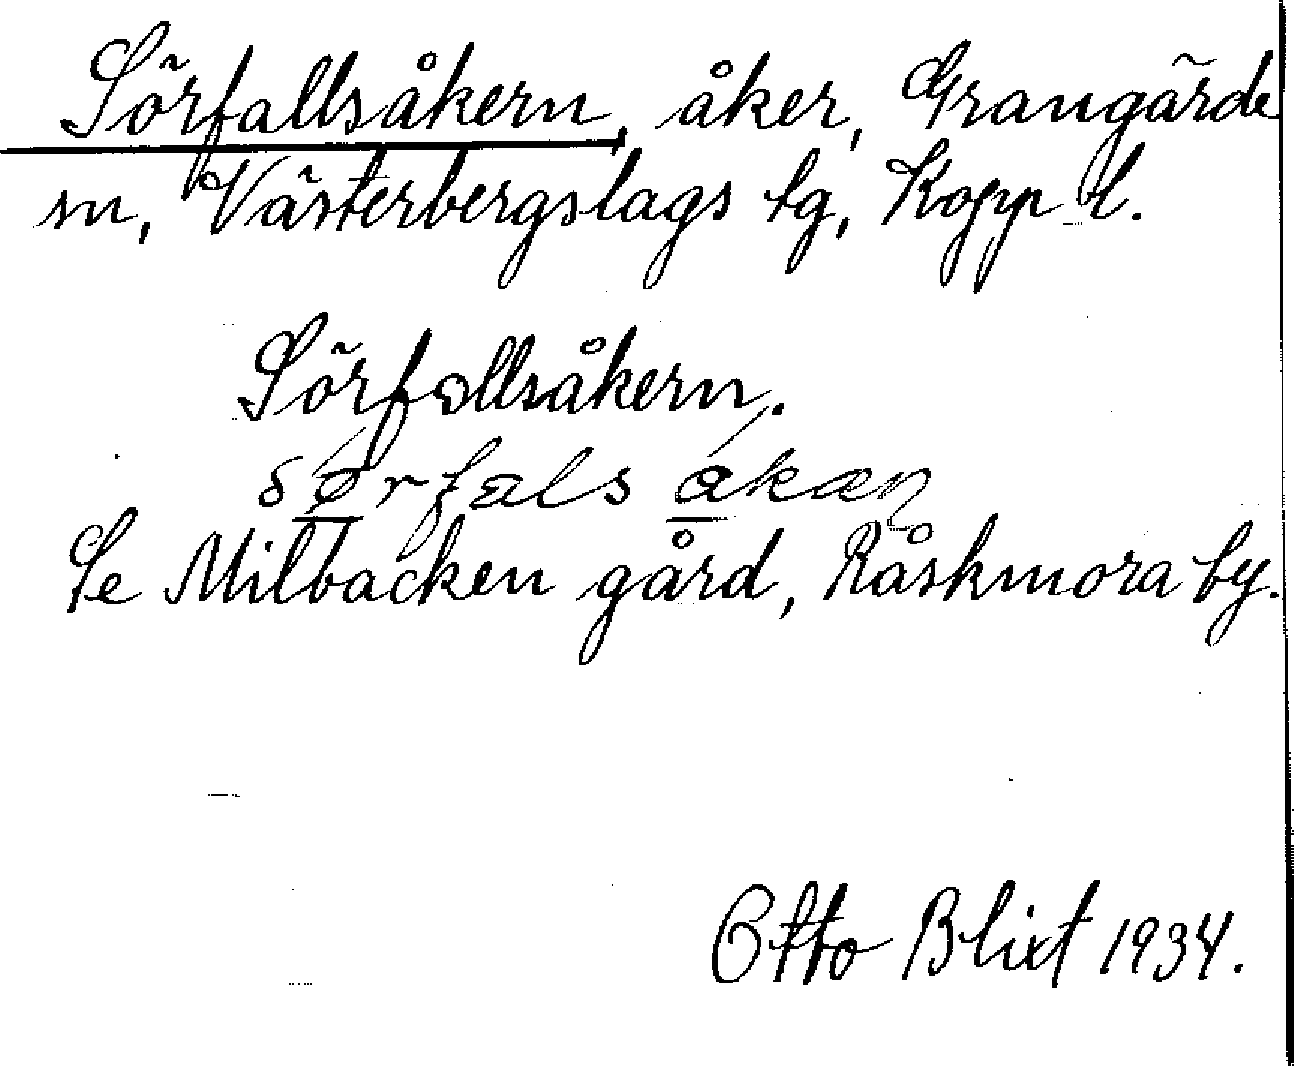 Sörfallsåkern, åker, Grangärde
sn, Västerbergslags tg, Kopp l.
Sörfallsåkern.
Se Milbacken gård, Råskmora by.
Otto Blixt 1934.